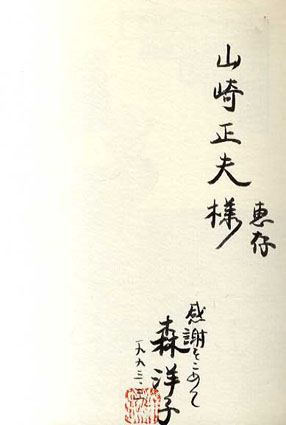 山崎正夫様
恵存
感謝をこめて
森洋子
一九九三、